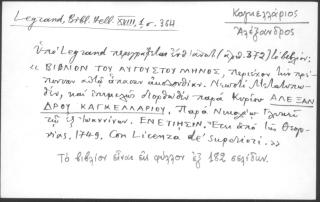 Legrand, Bibl. Hell. XVIII, 1, σ. 364
Καγκελλάριος
Ἀλέξανδρος
Ὑπὸ Legrand περιγράφεται ὑπ' ἀριθ. (ἀρ. 372) τὸ βιβλίον:
« ΒΙΒΛΙΟΝ ΤΟΥ ΑΥΓΟΥΣΤΟΥ ΜΗΝΟΣ, περιέχον τὴν πρέ-
πουσαν αὐτῷ ἅπασαν ἀκολουθίαν. Νεωστὶ Μετατυπω-
θέν, καὶ ἐπιμελῶς διορθωθὲν παρὰ Κυρίου ΑΛΕΞΑΝ
ΔΡΟΥ ΚΑΓΚΕΛΛΑΡΙΟΥ. Παρὰ Νικολάῳ Γλυκεῖ
τῷ ἐξ Ἰωαννίνων. ΕΝΕΤΙΗΣΙΝ. Ἔτει ἀπὸ τῆς Θεογο-
νίας, 1749. Con Licenza de' Superiori. »
Τὸ βιβλίον εἶναι εἰς φύλλον ἐξ 182 σελίδων.